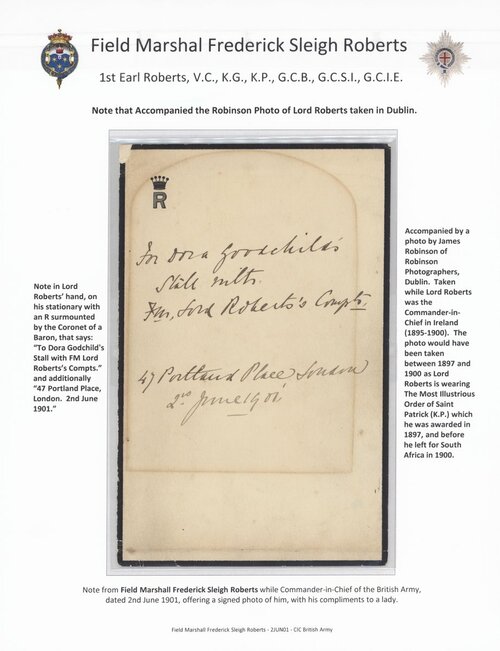 Field Marshal Frederick Sleigh Roberts
1st Earl Roberts, V.C., K.G., K.P., G.C.B., G.C.S.I., G.C.I.E.
Note that Accompanied the Robinson Photo of Lord Roberts taken in Dublin.
Note in Lord
Roberts' hand, on
his stationary with
an R surmounted
by the Coronet of a
Baron, that says:
"To Dora Godchild's
Stall with FM Lord
Roberts's Compts."
and additionally
"47 Portland Place,
London.  2nd June
1901."
R
For Dora Goodchild's
Stall with
FM, Lord Roberts's Compts.
47 Portland Place London
2nd June 1901
Accompanied by a
photo by James
Robinson of
Robinson
Photographers,
Dublin.  Taken
while Lord Roberts
was the
Commander-in-
Chief in Ireland
(1895-1900).  The
photo would have
been taken
between 1897 and
1900 as Lord
Roberts is wearing
The Most Illustrious
Order of Saint
Patrick (K.P.) which
he was awarded in
1897, and before
he left for South
Africa in 1900.
Note from Field Marshall Frederick Sleigh Roberts while Commander-in-Chief of the British Army,
dated 2nd June 1901, offering a signed photo of him, with his compliments to a lady.
Field Marshall Frederick Sleigh Roberts - 2JUN01 - CIC British Army